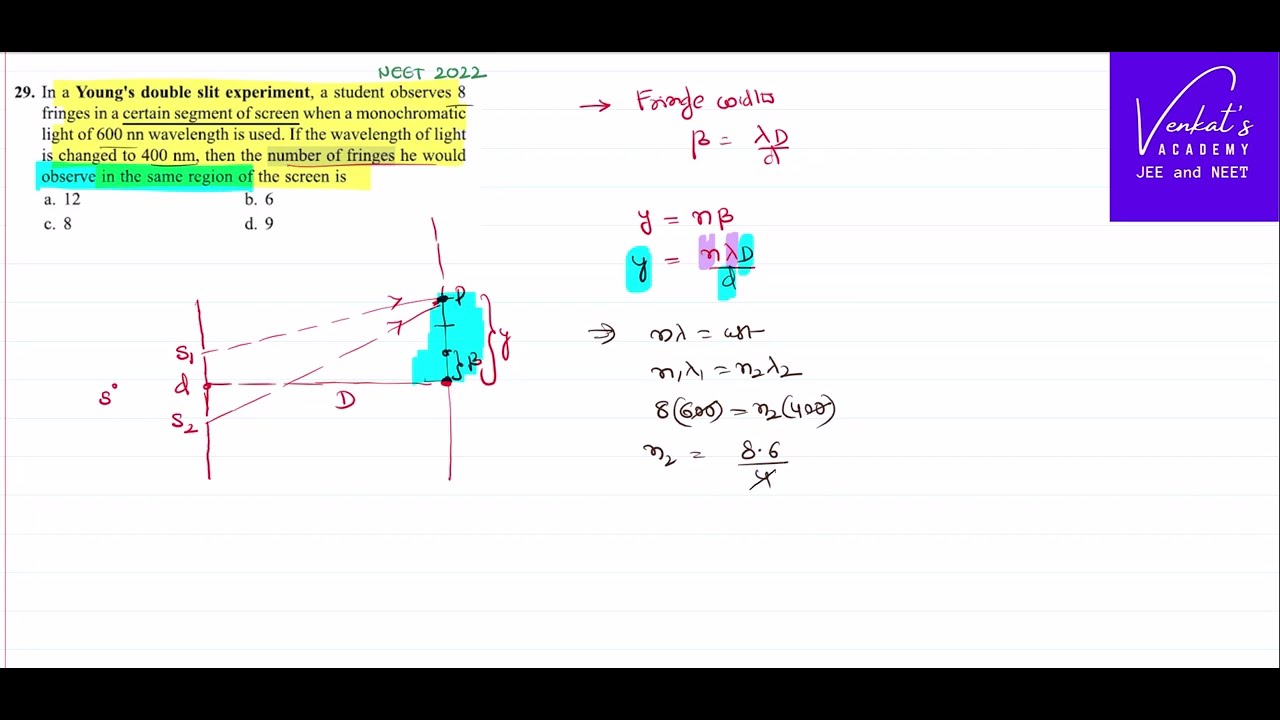 NEET 2022
29. In a Young's double slit experiment, a student observes 8
fringes in a certain segment of screen when a monochromatic
light of 600 nn wavelength is used. If the wavelength of light
is changed to 400 nm, then the number of fringes he would
observe in the same region of the screen is
a. 12 b. 6
c. 8 d. 9
→ Fringe width
β = λD/d
y = nβ
y = nλD/d
⇒ nλ = cst
n₁λ₁ = n₂λ₂
8(600) = n₂(400)
n₂ = 8·6/4
S
S₁
d
S₂
D
P
β
y
Venkat's
ACADEMY
JEE and NEET